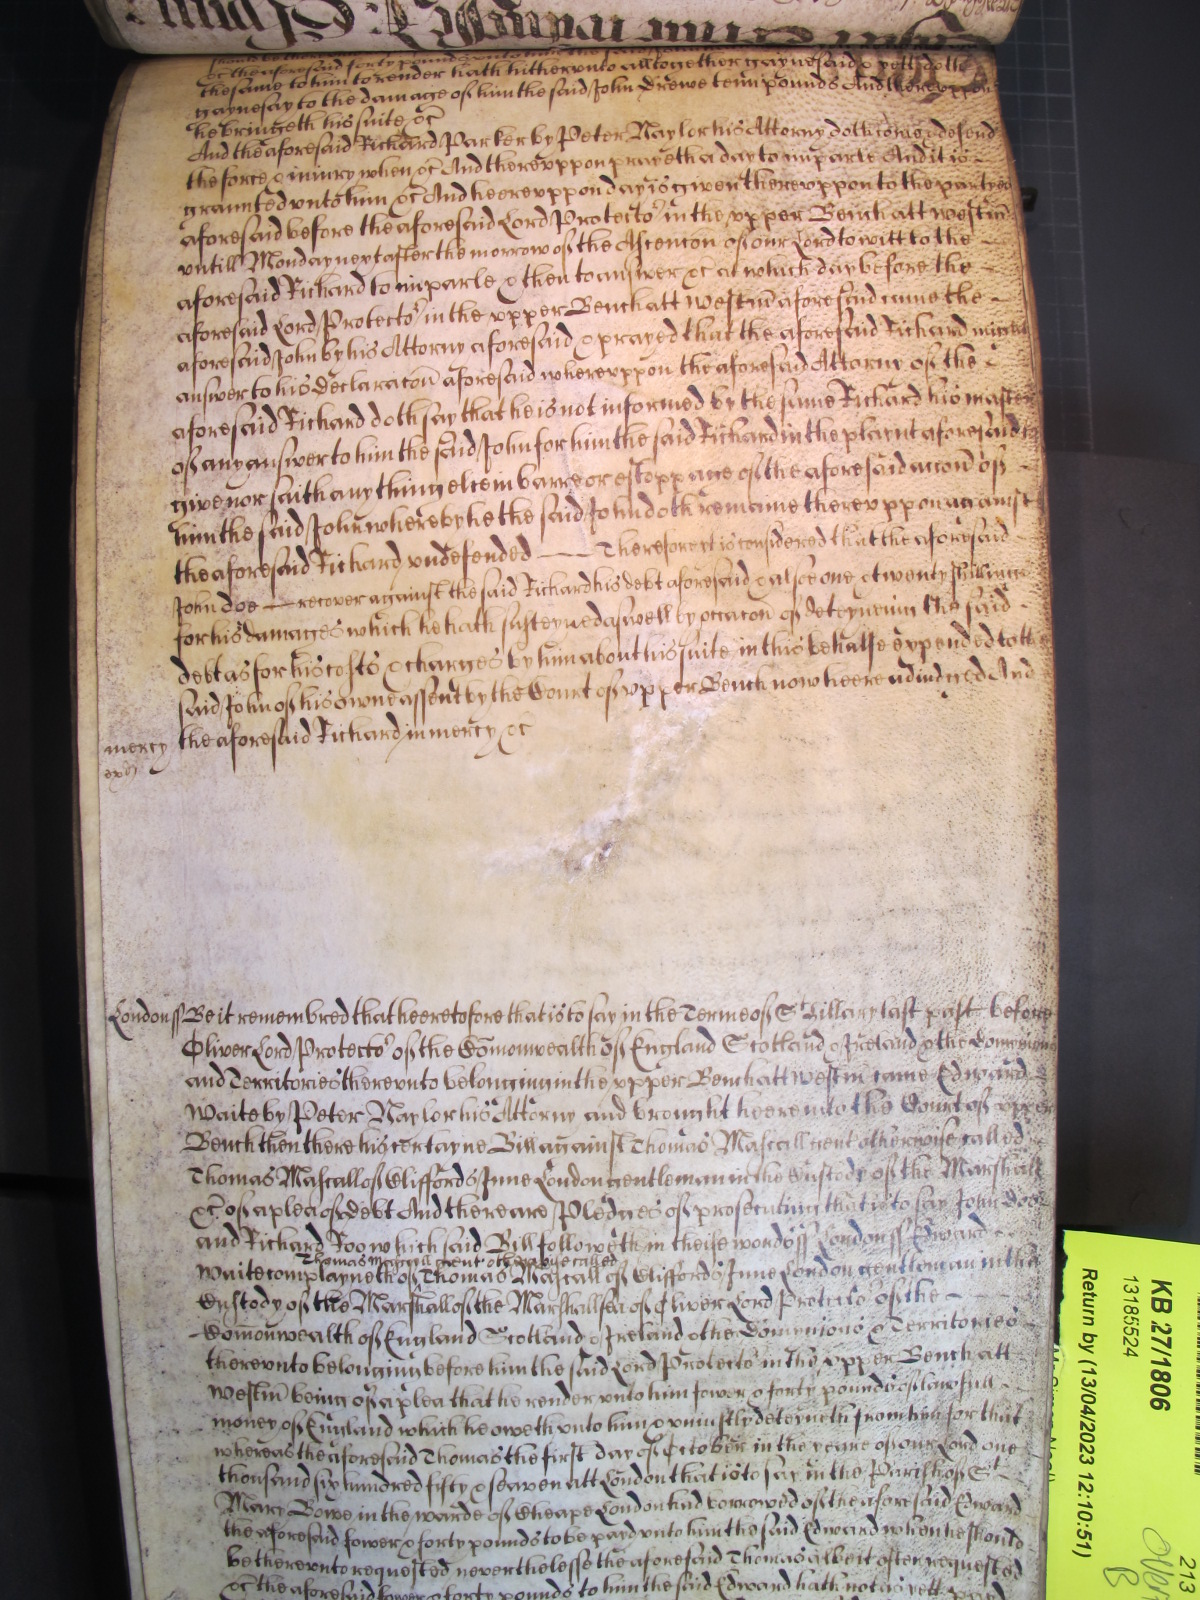 &c the aforesaid forty pounds
the same to him to render hath hitherunto alltogether gaynesaid & yett doth
gaynesay to the damage of him the said John Drewe tenn pounds And thereuppon
he bringeth his suite &c
And the aforesaid Richard Parker by Peter Naylor his Attorny doth come & defend
the force & iniury when &c And thereuppon prayeth a day to imparle And it is
graunted unto him &c And heereuppon day is given thereuppon to the partyes
aforesaid before the aforesaid Lord Protector in the upper Bench att Westm
untill Monday next after the morrow of the Ascencon of our Lord to witt to the
aforesaid Richard to imparle & then to answer &c at which day before the
aforesaid Lord Protector in the upper Bench att Westm aforesaid came the
aforesaid John by his Attorny aforesaid & prayed that the aforesaid Richard might
answer to his Declaracon aforesaid whereuppon the aforesaid Attorny of the
aforesaid Richard doth say that he is not informed by the same Richard his master
of any answer to him the said John for him the said Richard in the playnt aforesaid to
give nor saith any thing else in barre or estoppane of the aforesaid accon of
him the said John whereby he the said John doth remaine thereuppon against
the aforesaid Richard undefended — Therefore it is considered that the aforesaid
John doe — recover against the said Richard his debt aforesaid & alsoe one & twenty shillings
for his damages which he hath susteyned aswell by occacon of deteyneing the said
debt as for his costs & charges by him about his suite in this behalfe expended to the
said John of his owne assent by the Court of upper Bench now heere adiudged And
mercy the aforesaid Richard in mercy &c
Londonss Be it remembred that heeretofore that is to say in the Terme of St Hillary last past before
Oliver Lord Protector of the Comonwealth of England Scotland & Ireland & the Dominions
and Territories thereunto belonging in the upper Bench att Westm came Edward
Waite by Peter Naylor his Attorny and brought heere into the Court of upper
Bench then there his certayne Bill against Thomas Mascall gent otherwise called
Thomas Mascall of Cliffords Inne London gentleman in the Custody of the Marshall
&c of a plea of debt And there are Pledges of prosecuting that is to say John Doe
and Richard Roo which said Bill followeth in theise words ss Londonss Edward
Thomas Mascall gent otherwise called
Waite complayneth of Thomas Mascall of Cliffords Inne London gentleman in the
Custody of the Marshall of the Marshallsea of Oliver Lord Protector of the
Comonwealth of England Scotland & Ireland & the Dominions & Territories
thereunto belonging before him the said Lord Protector in the upper Bench att
Westm being of a plea that he render unto him fower & forty pounds of lawfull
money of England which he oweth unto him & uniustly deteyneth from him for that
whereas the aforesaid Thomas the first day of October in the yeare of our Lord one
thousand six hundred fifty & seaven att London that is to say in the Parish of St
Mary Bowe in the warde of Cheape London had borrowed of the aforesaid Edward
the aforesaid fower & forty pounds to be payd unto him the said Edward when he should
be thereunto requested neverthelesse the aforesaid Thomas albeit often requested
&c the aforesaid fower & forty pounds to him the said Edward hath not as yett
KB 27/1806
13185524
Return by (13/04/2023 12:10:51)
213